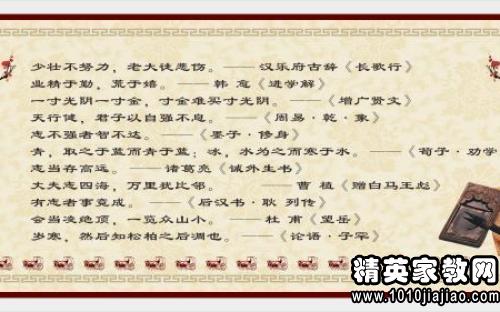 少壮不努力，老大徒悲伤。——汉乐府古辞《长歌行》
业精于勤，荒于嬉。——韩 愈《进学解》
一寸光阴一寸金，寸金难买寸光阴。——《增广贤文》
天行健，君子以自强不息。——《周易·乾·象》
志不强者智不达。——《墨子·修身》
青，取之于蓝而青于蓝；冰，水为之而寒于水。——《荀子·劝学
志当存高远。——诸葛亮《诫外生书》
丈夫志四海，万里犹比邻。——曹 植《赠白马王彪》
有志者事竟成。——《后汉书·耿 列传》
会当凌绝顶，一览众山小。——杜 甫《望岳》
岁寒，然后知松柏之后凋也。——《论语·子罕》
精英家教网
www.1010jiajiao.com